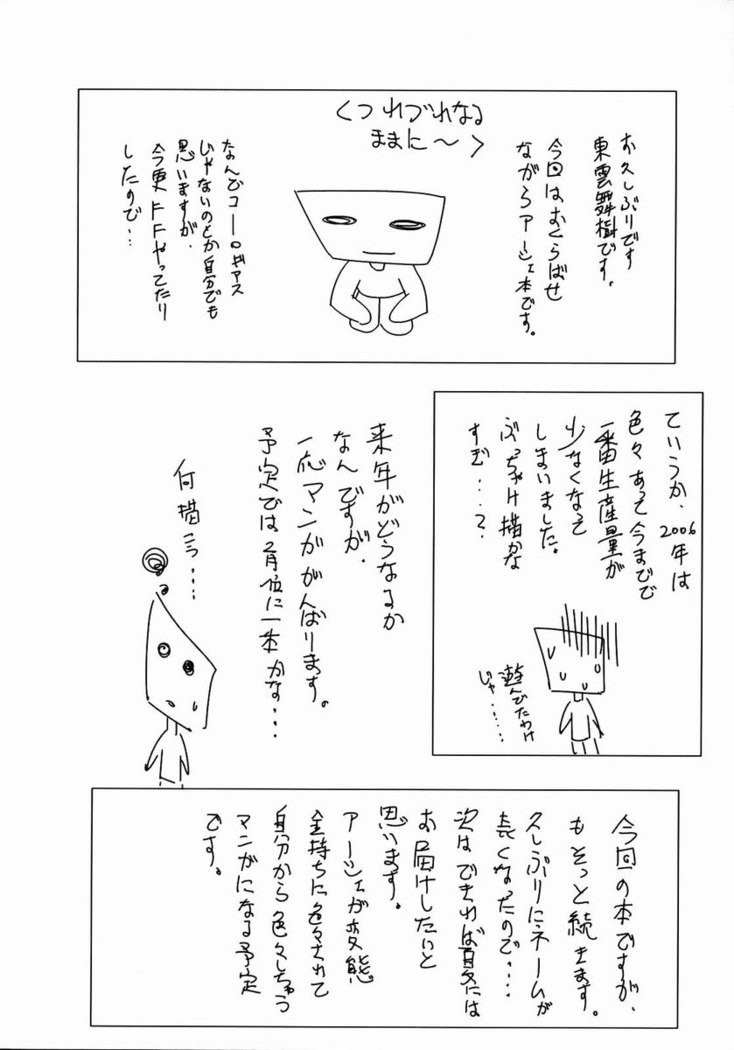 くつれづれなる
ままに〜>
お久しぶりです
東雲舞樹です。
今回はおくらばせ
ながらアーシェ本です。
なんでコーーロギアス
じゃないのとか自分でも
思いますが、
今更FFやってたり
したので…
ていうか、2006年は
色々あって今までで
一番生産量が
少なくなって
しまいました。
ぶっちゃけ描かな
すぎ・・・?
遊んでたわけ
じゃ……
来年がどうなるか
なんですが、
一応マンガがんばります。
予定では2月位に一本かな…
何描こう…
今回の本ですが、
もそっと続きます。
久しぶりにネームが
長くなったので…
次はできれば夏には
お届けしたいと
思います。
アーシェが変態
金持ちに色々されて
自分から色々しちゃう
マンガになる予定
です。